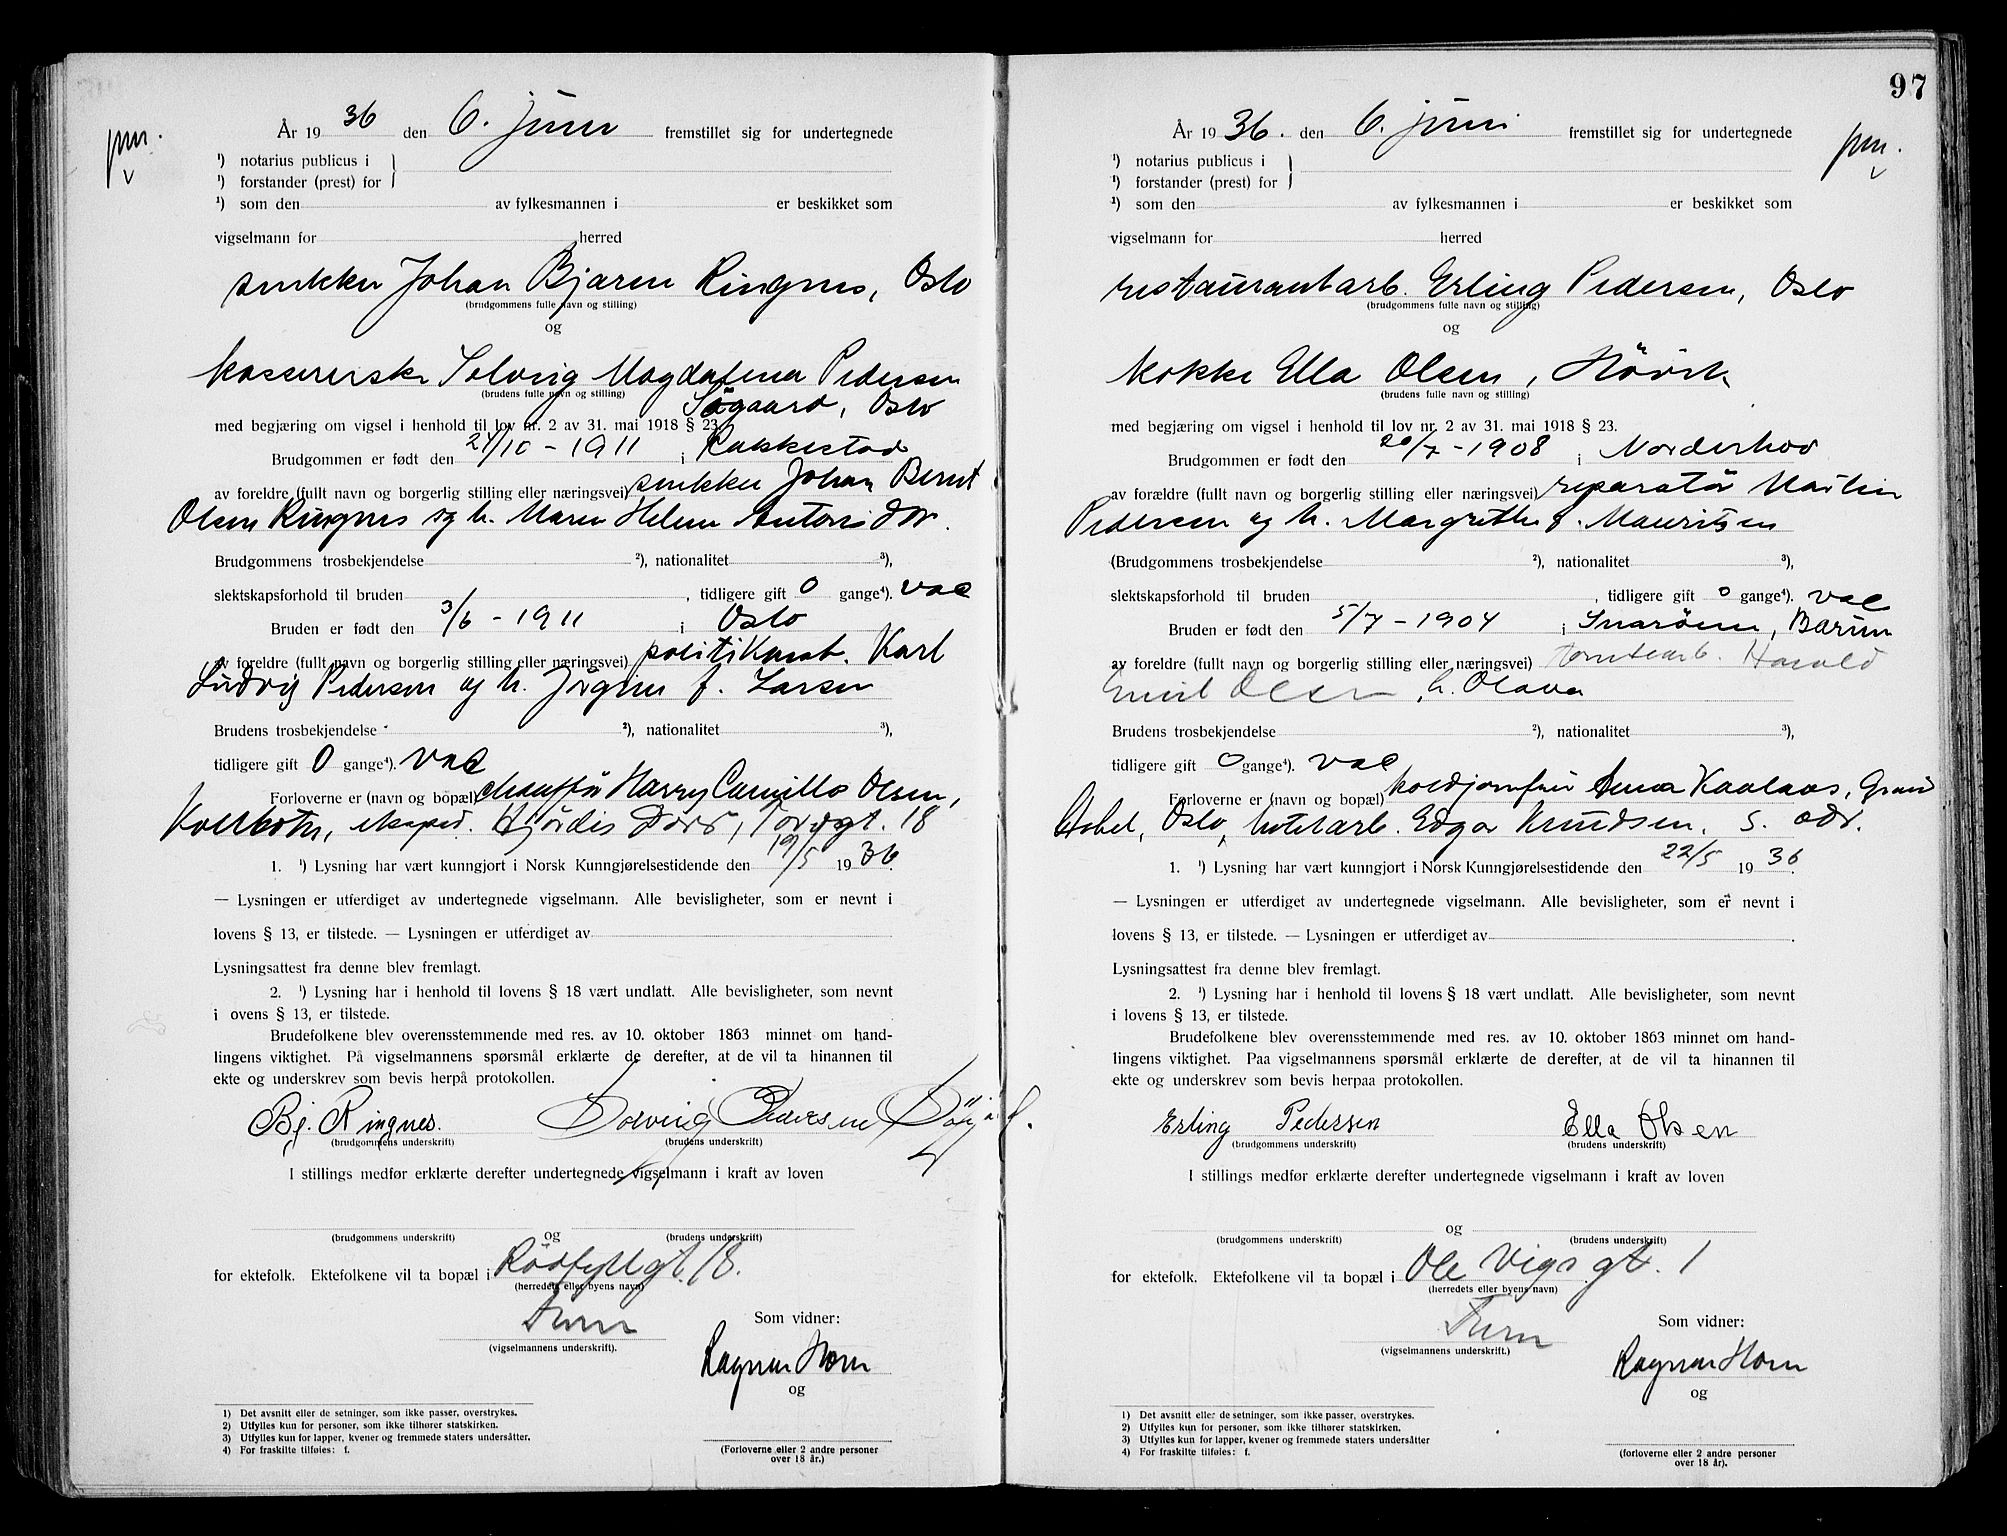 pm.
År 1936 den 6. juni fremstillet sig for undertegnede
¹) notarius publicus i
¹) forstander (prest) for
¹) som den av fylkesmannen i er beskikket som
vigselmann for herred
snekker Johan Bjarne Ringnes, Oslo
(brudgommens fulle navn og stilling)
og
kassererske Solveig Magdalena Pedersen
(brudens fulle navn og stilling)
Søgaard, Oslo
med begjæring om vigsel i henhold til lov nr. 2 av 31. mai 1918 § 23.
Brudgommen er født den 24/10 - 1911 i Rakkestad
av foreldre (fullt navn og borgerlig stilling eller næringsvei) snekker Johan Bernt
Olsen Ringnes og h. Maren Helene Antonisdtr.
Brudgommens trosbekjendelse ²), nationalitet ³),
slektskapsforhold til bruden , tidligere gift 0 gange⁴). vac
Bruden er født den 3/6 - 1911 i Oslo
av foreldre (fullt navn og borgerlig stilling eller næringsvei) politikonst. Karl
Ludvig Pedersen og h. Jörgine f. Larsen
Brudens trosbekjendelse ²), nationalitet ³),
tidligere gift 0 gange⁴). vac
Forloverne er (navn og bopæl) chauffør Harry Camillo Olsen,
Kolbotn, eksped. Hjørdis Torggt. 18
1. ¹) Lysning har vært kunngjort i Norsk Kunngjørelsestidende den 19/5 1936.
— Lysningen er utferdiget av undertegnede vigselmann. Alle bevisligheter, som er nevnt i
lovens § 13, er tilstede. — Lysningen er utferdiget av
Lysningsattest fra denne blev fremlagt.
2. ¹) Lysning har i henhold til lovens § 18 vært undlatt. Alle bevisligheter, som nevnt
i ovens § 13, er tilstede.
Brudefolkene blev overensstemmende med res. av 10. oktober 1863 minnet om hand-
lingens viktighet. På vigselmannens spørsmål erklærte de derefter, at de vil ta hinannen til
ekte og underskrev som bevis herpå protokollen.
Bj. Ringnes. Solveig Pedersen Søgård.
(brudgommens underskrift) (brudens underskrift)
I stillings medfør erklærte derefter undertegnede vigselmann i kraft av loven
og
(brudgommens underskrift) (brudens underskrift)
for ektefolk. Ektefolkene vil ta bopæl i Rödfyllgt. 18.
(herredets eller byens navn)
(vigselmannens underskrift).
Som vidner:
Ragnar Horn
og
(Forloverne eller 2 andre personer
over 18 år.)
1) Det avsnitt eller de setninger, som ikke passer, overstrykes.
2) Utfylles kun for personer, som ikke tilhører statskirken.
3) Utfylles kun for lapper, kvener og fremmede staters undersåtter.
4) For fraskilte tilføies: f.
97
pm.
År 1936. den 6. juni fremstillet sig for undertegnede
¹) notarius publicus i
¹) forstander (prest) for
¹) som den av fylkesmannen i er beskikket som
vigselmann for herred
restaurantarb. Erling Pedersen, Oslo
(brudgommens fulle navn og stilling)
og
kokke Ella Olsen, Hövik
(brudens fulle navn og stilling)
med begjæring om vigsel i henhold til lov nr. 2 av 31. mai 1918 § 23.
Brudgommen er født den 20/7 - 1908 i Norderhov
av forældre (fullt navn og borgerlig stilling eller næringsvei) reparatör Martin
Pedersen og h. Margrethe f. Mauritsen
(Brudgommens trosbekjendelse ²), nationalitet ³),
slektskapsforhold til bruden , tidligere gift 0 gange⁴). vac
Bruden er født den 5/7 - 1904 i Snaröen, Bærum
av foreldre (fullt navn og borgerlig stilling eller næringsvei) tomtearb. Harald
Emil Olsen, h. Olava
Brudens trosbekjendelse ²), nationalitet ³),
tidligere gift 0 gange⁴). vac
Forloverne er (navn og bopæl) koldjomfru Anna Kaalaas, Grand
Hotel, Oslo, hotelarb. Edgar Knudsen, s. adr.
1. ¹) Lysning har vært kunngjort i Norsk Kunngjørelsestidende den 22/5 1936.
— Lysningen er utferdiget av undertegnede vigselmann. Alle bevisligheter, som er nevnt i
lovens § 13, er tilstede. — Lysningen er utferdiget av .
Lysningsattest fra denne blev fremlagt.
2. ¹) Lysning har i henhold til lovens § 18 vært undlatt. Alle bevisligheter, som nevnt
i lovens § 13, er tilstede.
Brudefolkene blev overensstemmende med res. av 10. oktober 1863 minnet om hand-
lingens viktighet. Paa vigselmannens spørsmål erklærte de derefter, at de vil ta hinannen til
ekte og underskrev som bevis herpaa protokollen.
Erling Pedersen Ella Olsen
(brudgommens underskrift) (brudens underskrift)
I stillings medfør erklærte derefter undertegnede vigselmann i kraft av loven
og
(brudgommens underskrift) (brudens underskrift)
for ektefolk. Ektefolkene vil ta bopæl i Ole Vigs gt. 1
(herredets eller byens navn)
(vigselmannens underskrift.)
Som vidner:
Ragnar Horn
og
(forloverne eller 2 andre personer
over 18 år).
1) Det avsnitt eller de setninger, som ikke passer, overstrykes.
2) Utfylles kun for personer, som ikke tilhører statskirken.
3) Utfylles kun for lapper, kvener og fremmede staters undersåtter
4) For fraskilte tilføies: f.